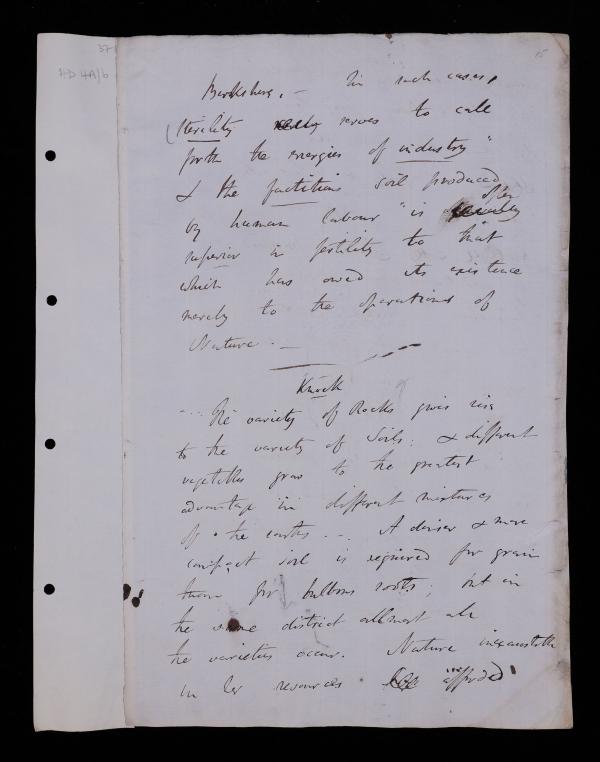 37
HD 4A/6
15
Berkshire. – In such cases,
sterility serves to call
forth the energies of industry"
& the factitious soil produced
often
by human labour "is
superior in fertility to that
which has owed its existence
merely to the operations of
Nature. –
Knock
The variety of Rocks gives rise
to the variety of Soils; & different
vegetables grow to the greatest
advantage in different mixtures
of the earths ... A denser & more
compact soil is required for grain
than for bulbous roots; but in
the same district allmost all
the varieties occur. Nature inexaustible
in her resources has afforded